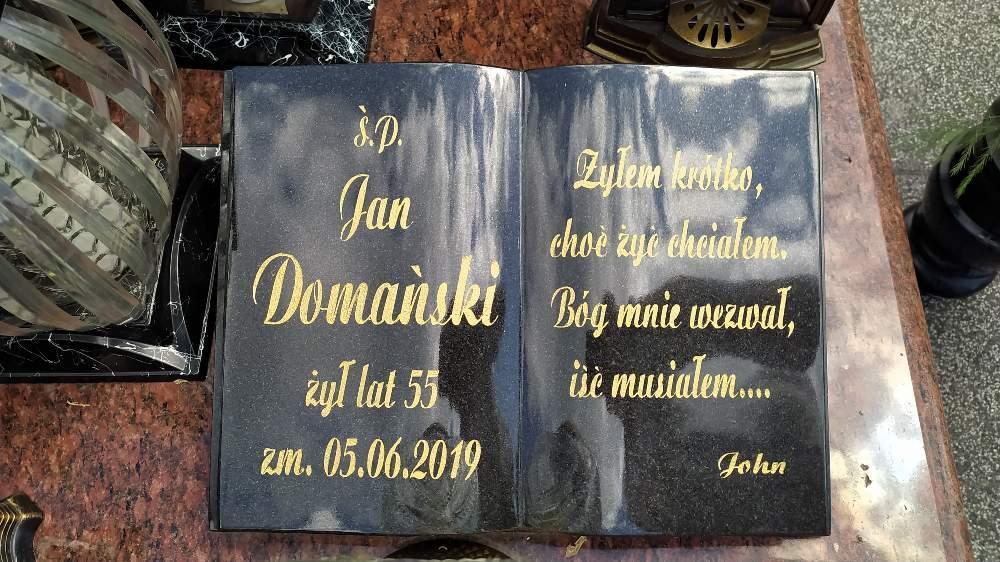 ś.p.
Jan
Domański
żył lat 55
zm. 05.06.2019
Żyłem krótko,
choć żyć chciałem.
Bóg mnie wezwał,
iść musiałem....
John